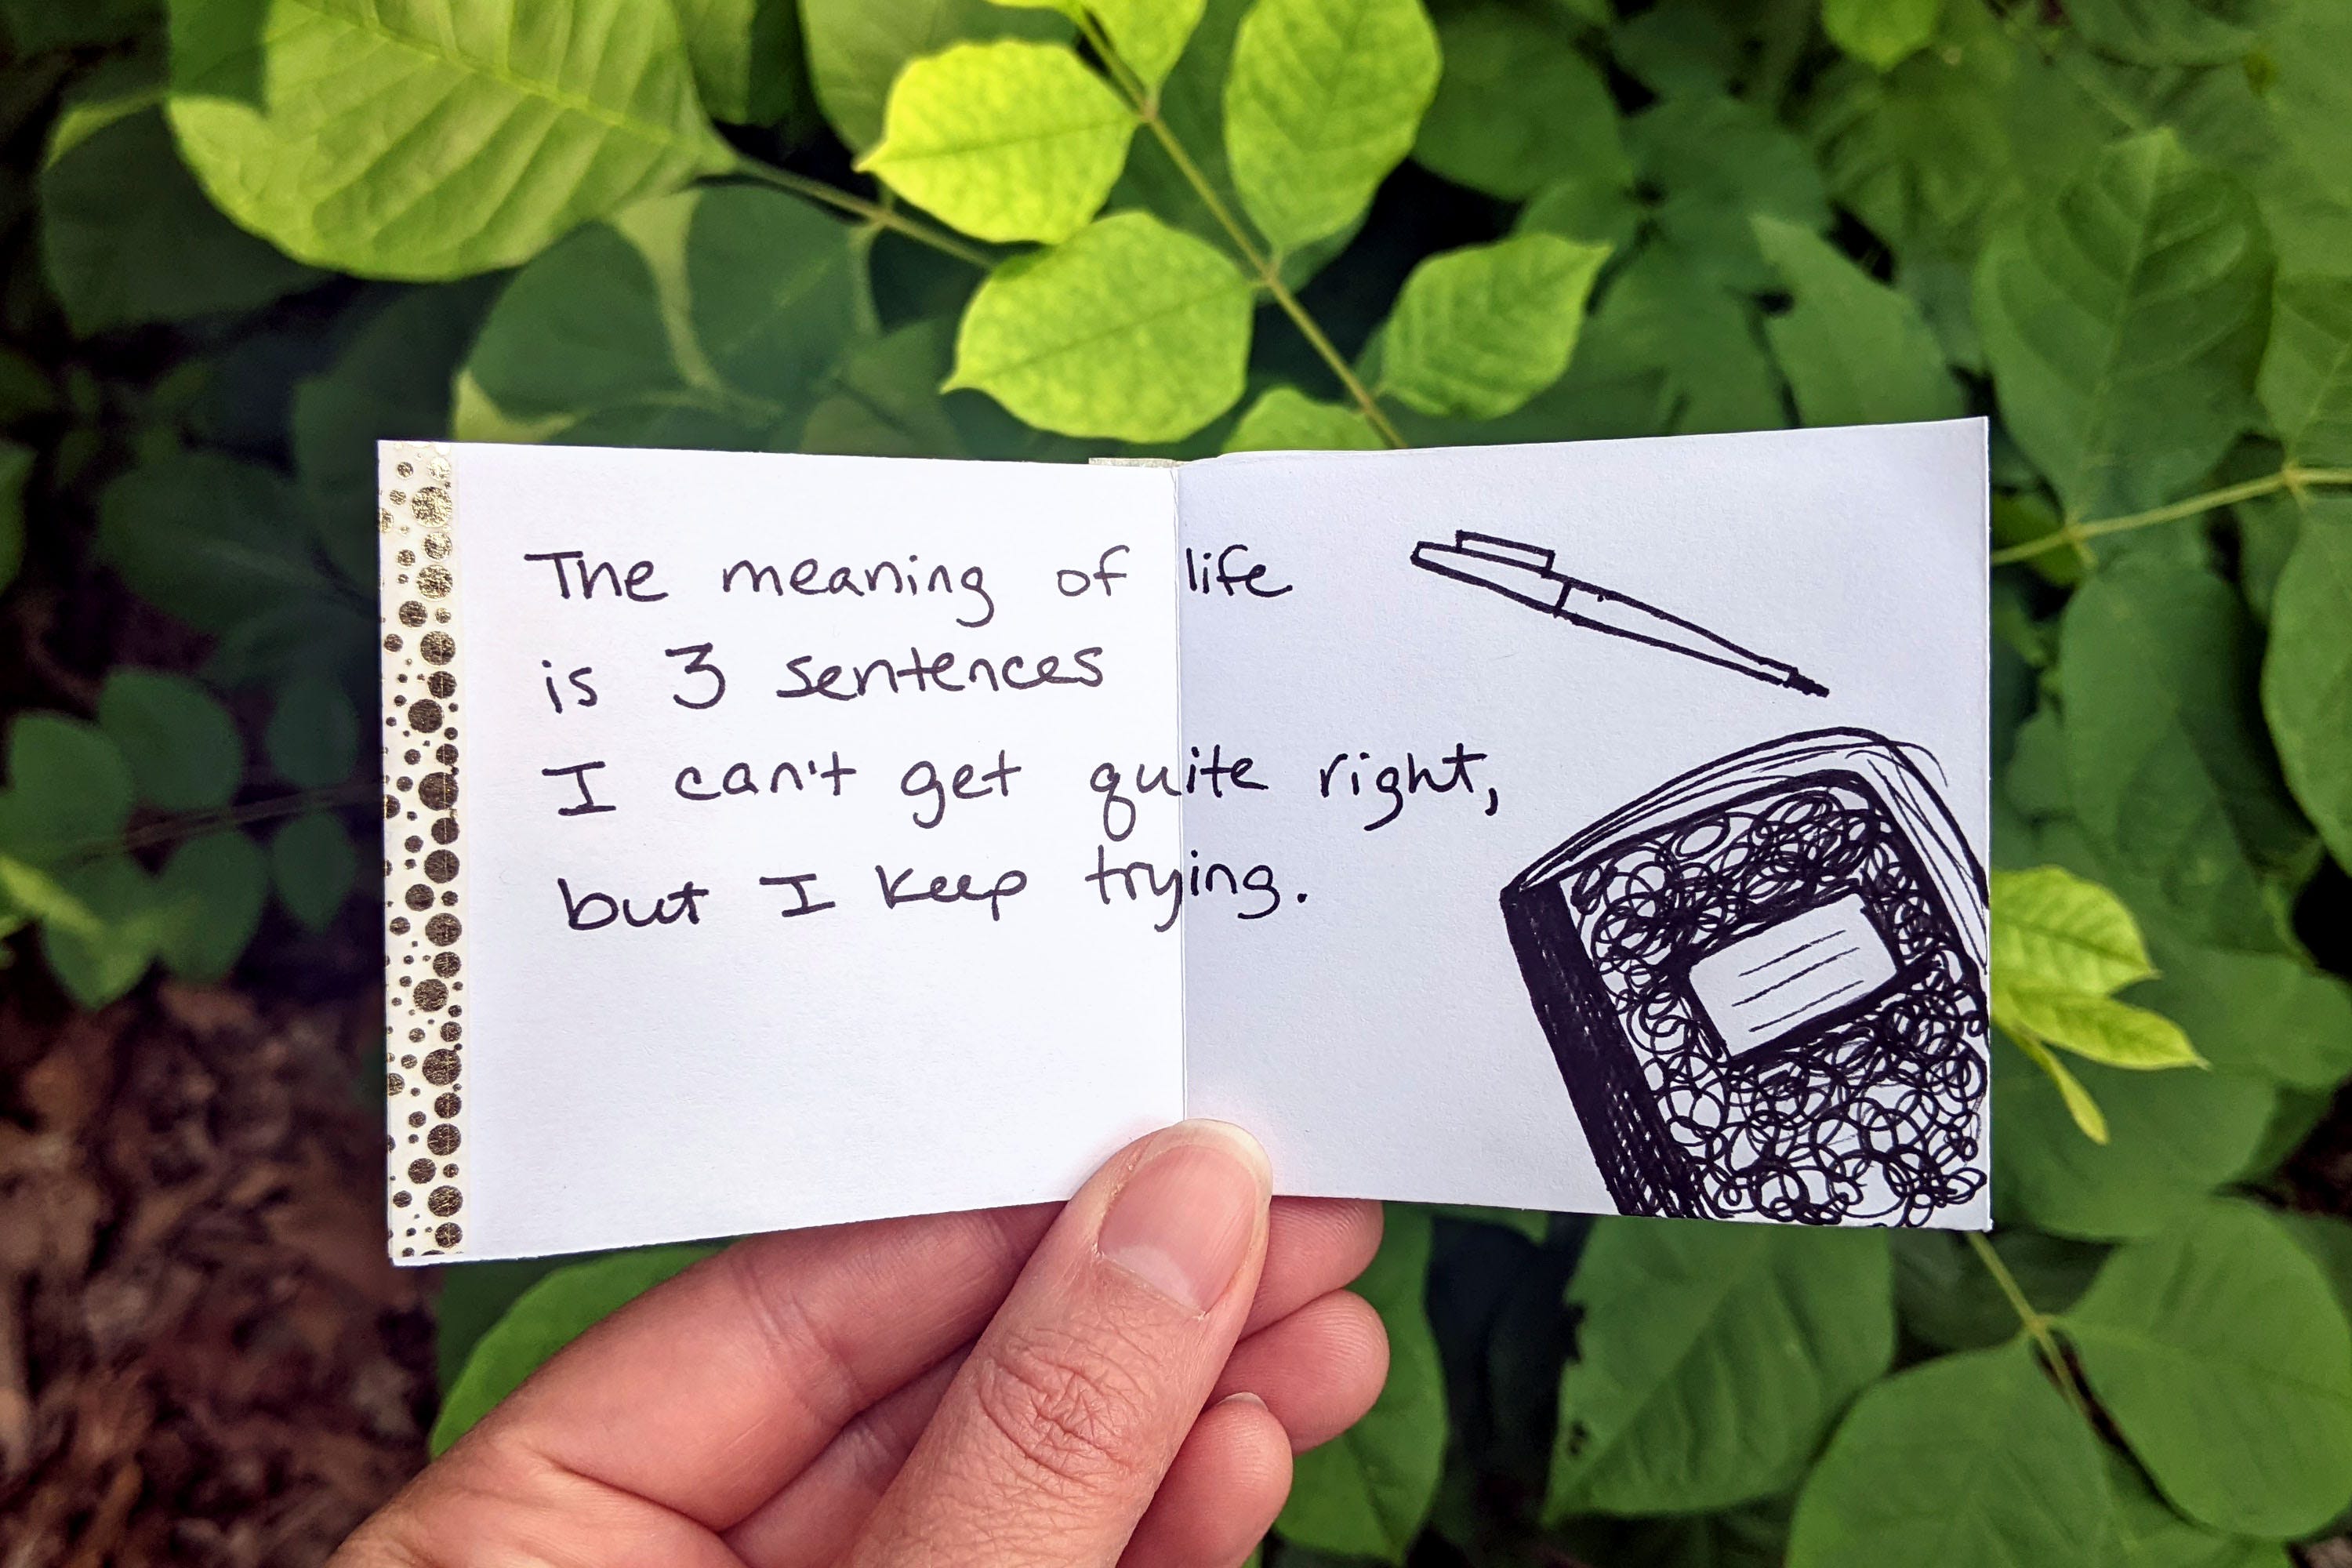 The meaning of life
is 3 sentences
I can't get quite right,
but I keep trying.